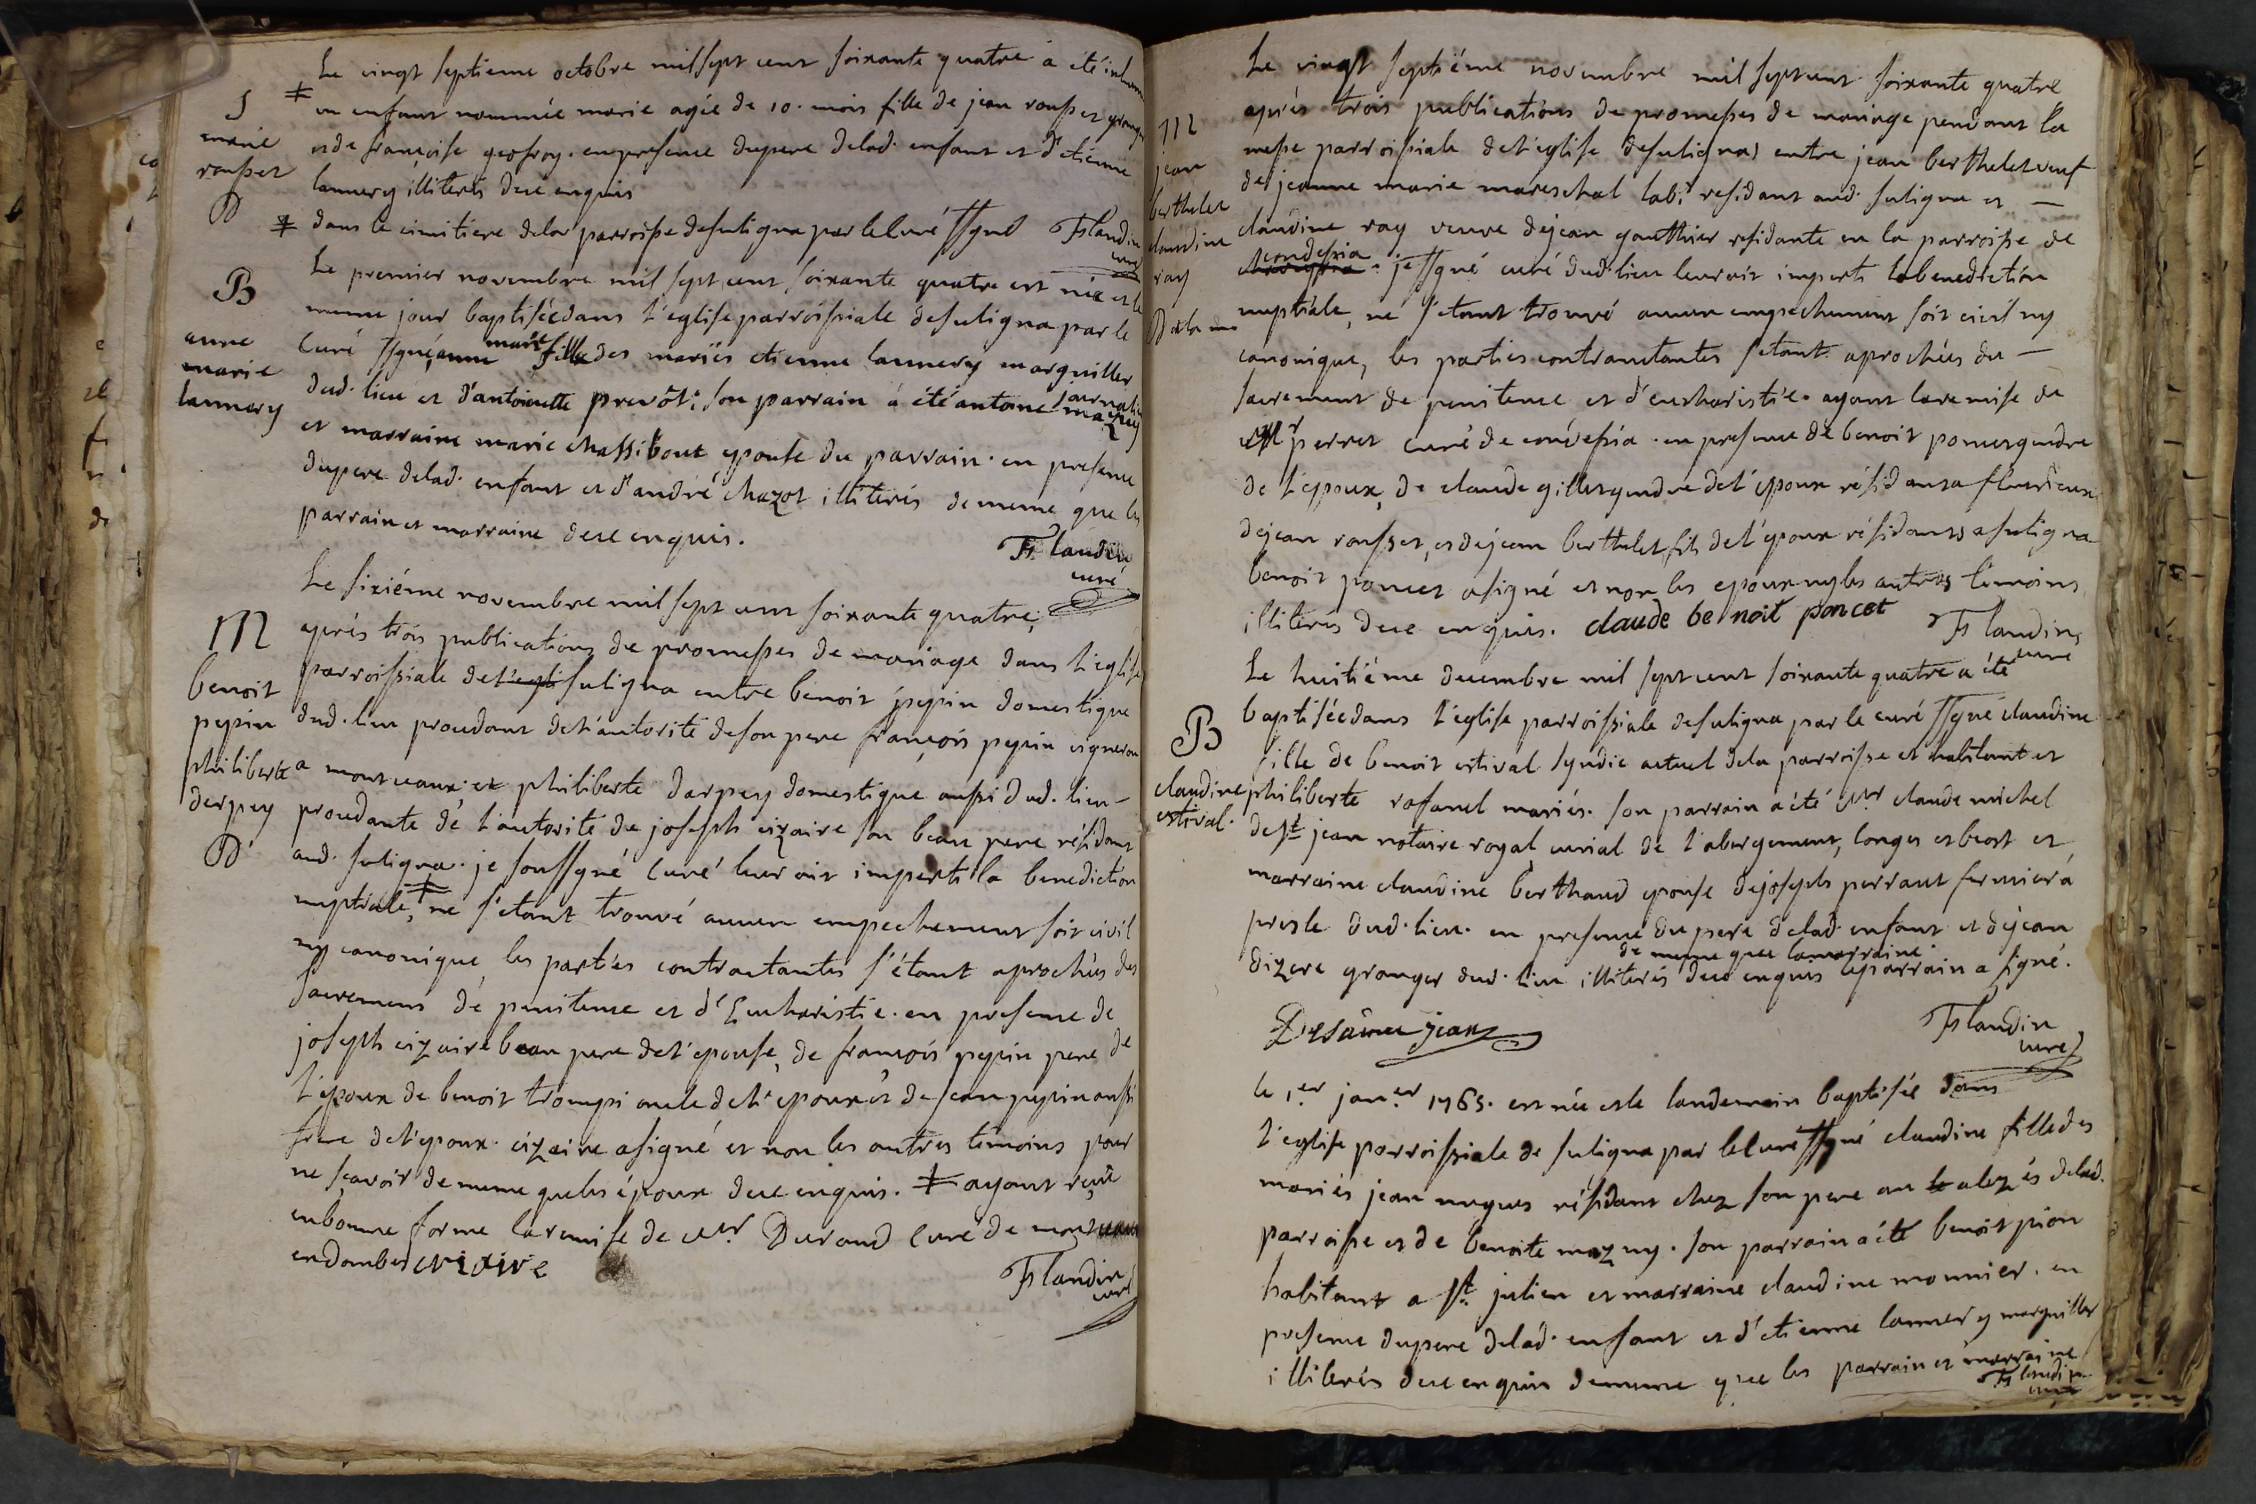 Le vingt septieme octobre mil sept cent soixante quatre a été inhumé
S
marie
rousset
D
‡ un enfant nommée marie agée de 10. mois fille de jean rousset granger
et de françoise geofroy. en presence du pere de lad. enfant et d'etienne
lannery illiterés de ce enquis
‡ dans le cimitiere de la parroisse de suligna par le curé ssgné Flandin
curé
B
anne
marie
lannery
Le premier novembre mil sept cent soixante quatre est née et le
meme jour baptisée dans l'eglise parroissiale de suligna par le
curé ssgné anne marie fille des mariés etienne lannery marguiller
dud. lieu et d'antoinette prevôt. son parrain a été antoine mazuy journalier
et marraine marie chassibout epouse du parrain. en presence
du pere de lad. enfant et d'andré chazot illiterés de meme que les
parrain et marraine de ce enquis.
Flandin
curé
M
benoit
pepin
philiberte
derpey
D
Le sixiéme novembre mil sept cent soixante quatre,
aprés trois publications de promesses de mariage dans l'eglise
parroissiale de l'egli suligna entre benoit pepin domestique
dud. lieu procedant de l'autorité de son pere françois pepin vigneron
a montceaux; et philiberte darpey domestique aussi dud. lieu –
procedante de l'autorité de joseph cizaire son beau pere résidant
aud. suligna. je soussgné curé leur ait imparti la benediction
nuptiale, ‡ ne s'etant trouvé aucun empechement soit civil
ny canonique, les parties contractantes s'étant aprochées des
sacremens de penitence et d'Eucharistie. en presence de
joseph cizaire beau pere de l'epouse, de françois pepin pere de
l'epoux de benoit trompi oncle de l'epoux et de jean pepin aussi
frere de l'epoux. cizaire a signé et non les autres témoins pour
ne sçavoir de meme que les époux de ce enquis. ‡ ayant reçue
en bonne forme la remise de Mr Durand curé de montceaux
en dombes cizaire
Flandin
curé
M
jean
berthelet
claudine
ray
Le vingt septiéme novembre mil sept cent soixante quatre
aprés trois publications de promesses de mariage pendant la
messe parroissiale de l'eglise de suligna entre jean berthelet veuf
de jeanne marie mareschal lab.r residant aud. suligna et –
claudine ray veuve de jean gautthier residante en la parroisse de
condessia. je ssgné curé dud. lieu leur ait imparti la benediction
nuptiale, ne s'etant trouvé aucun empechement soit civil ny
canonique, les parties contractantes s'etant aprochées du –
sacrement de penitence et d'eucharistie. ayant la remise de
Mr perret curé de condessia. en presence de benoit poncet gendre
de l'epoux, de claude gillet gendre de l'epoux résidant a fleurieux
de jean rousset, et de jean berthelet fils de l'epoux résidants a suligna
benoit poncet a signé et non les epoux ny les autres témoins
illiterés de ce enquis. claude benoit poncet Flandin
curé
B
claudine
estival.
Le huitiéme decembre mil sept cent soixante quatre a été
baptisée dans l'eglise parroissiale de suligna par le curé ssgné claudine
fille de benoit estival syndic actuel de la parroisse et habitant et
philiberte rafanel mariés. son parrain a été Mr claude michel
de st jean notaire royal curial de l'abergement, longes et beost et
marraine claudine berthaud epouse de joseph perraut fermier a
presle dud. lieu. en presence du pere de lad. enfant et de jean
dizere granger dud. lieu illiterés de ce enquis de meme que la marraine. le parrain a signé.
Desaint jean
Flandin
curé
le 1.er jan.er 1765. est née et le landemain baptisée dans
l'eglise parroissiale de suligna par le curé ssgné claudine fille des
mariés jean nugues résidant chez son pere au alezés de lad.
parroisse et de benoite mazuy. son parrain a été benoit pion
habitant a st. julien et marraine claudine monnier. en
presence du pere de lad. enfant et d'etienne lannery marguiller
illiterés de ce enquis de meme que les parrain et marraine
Flandin
curé